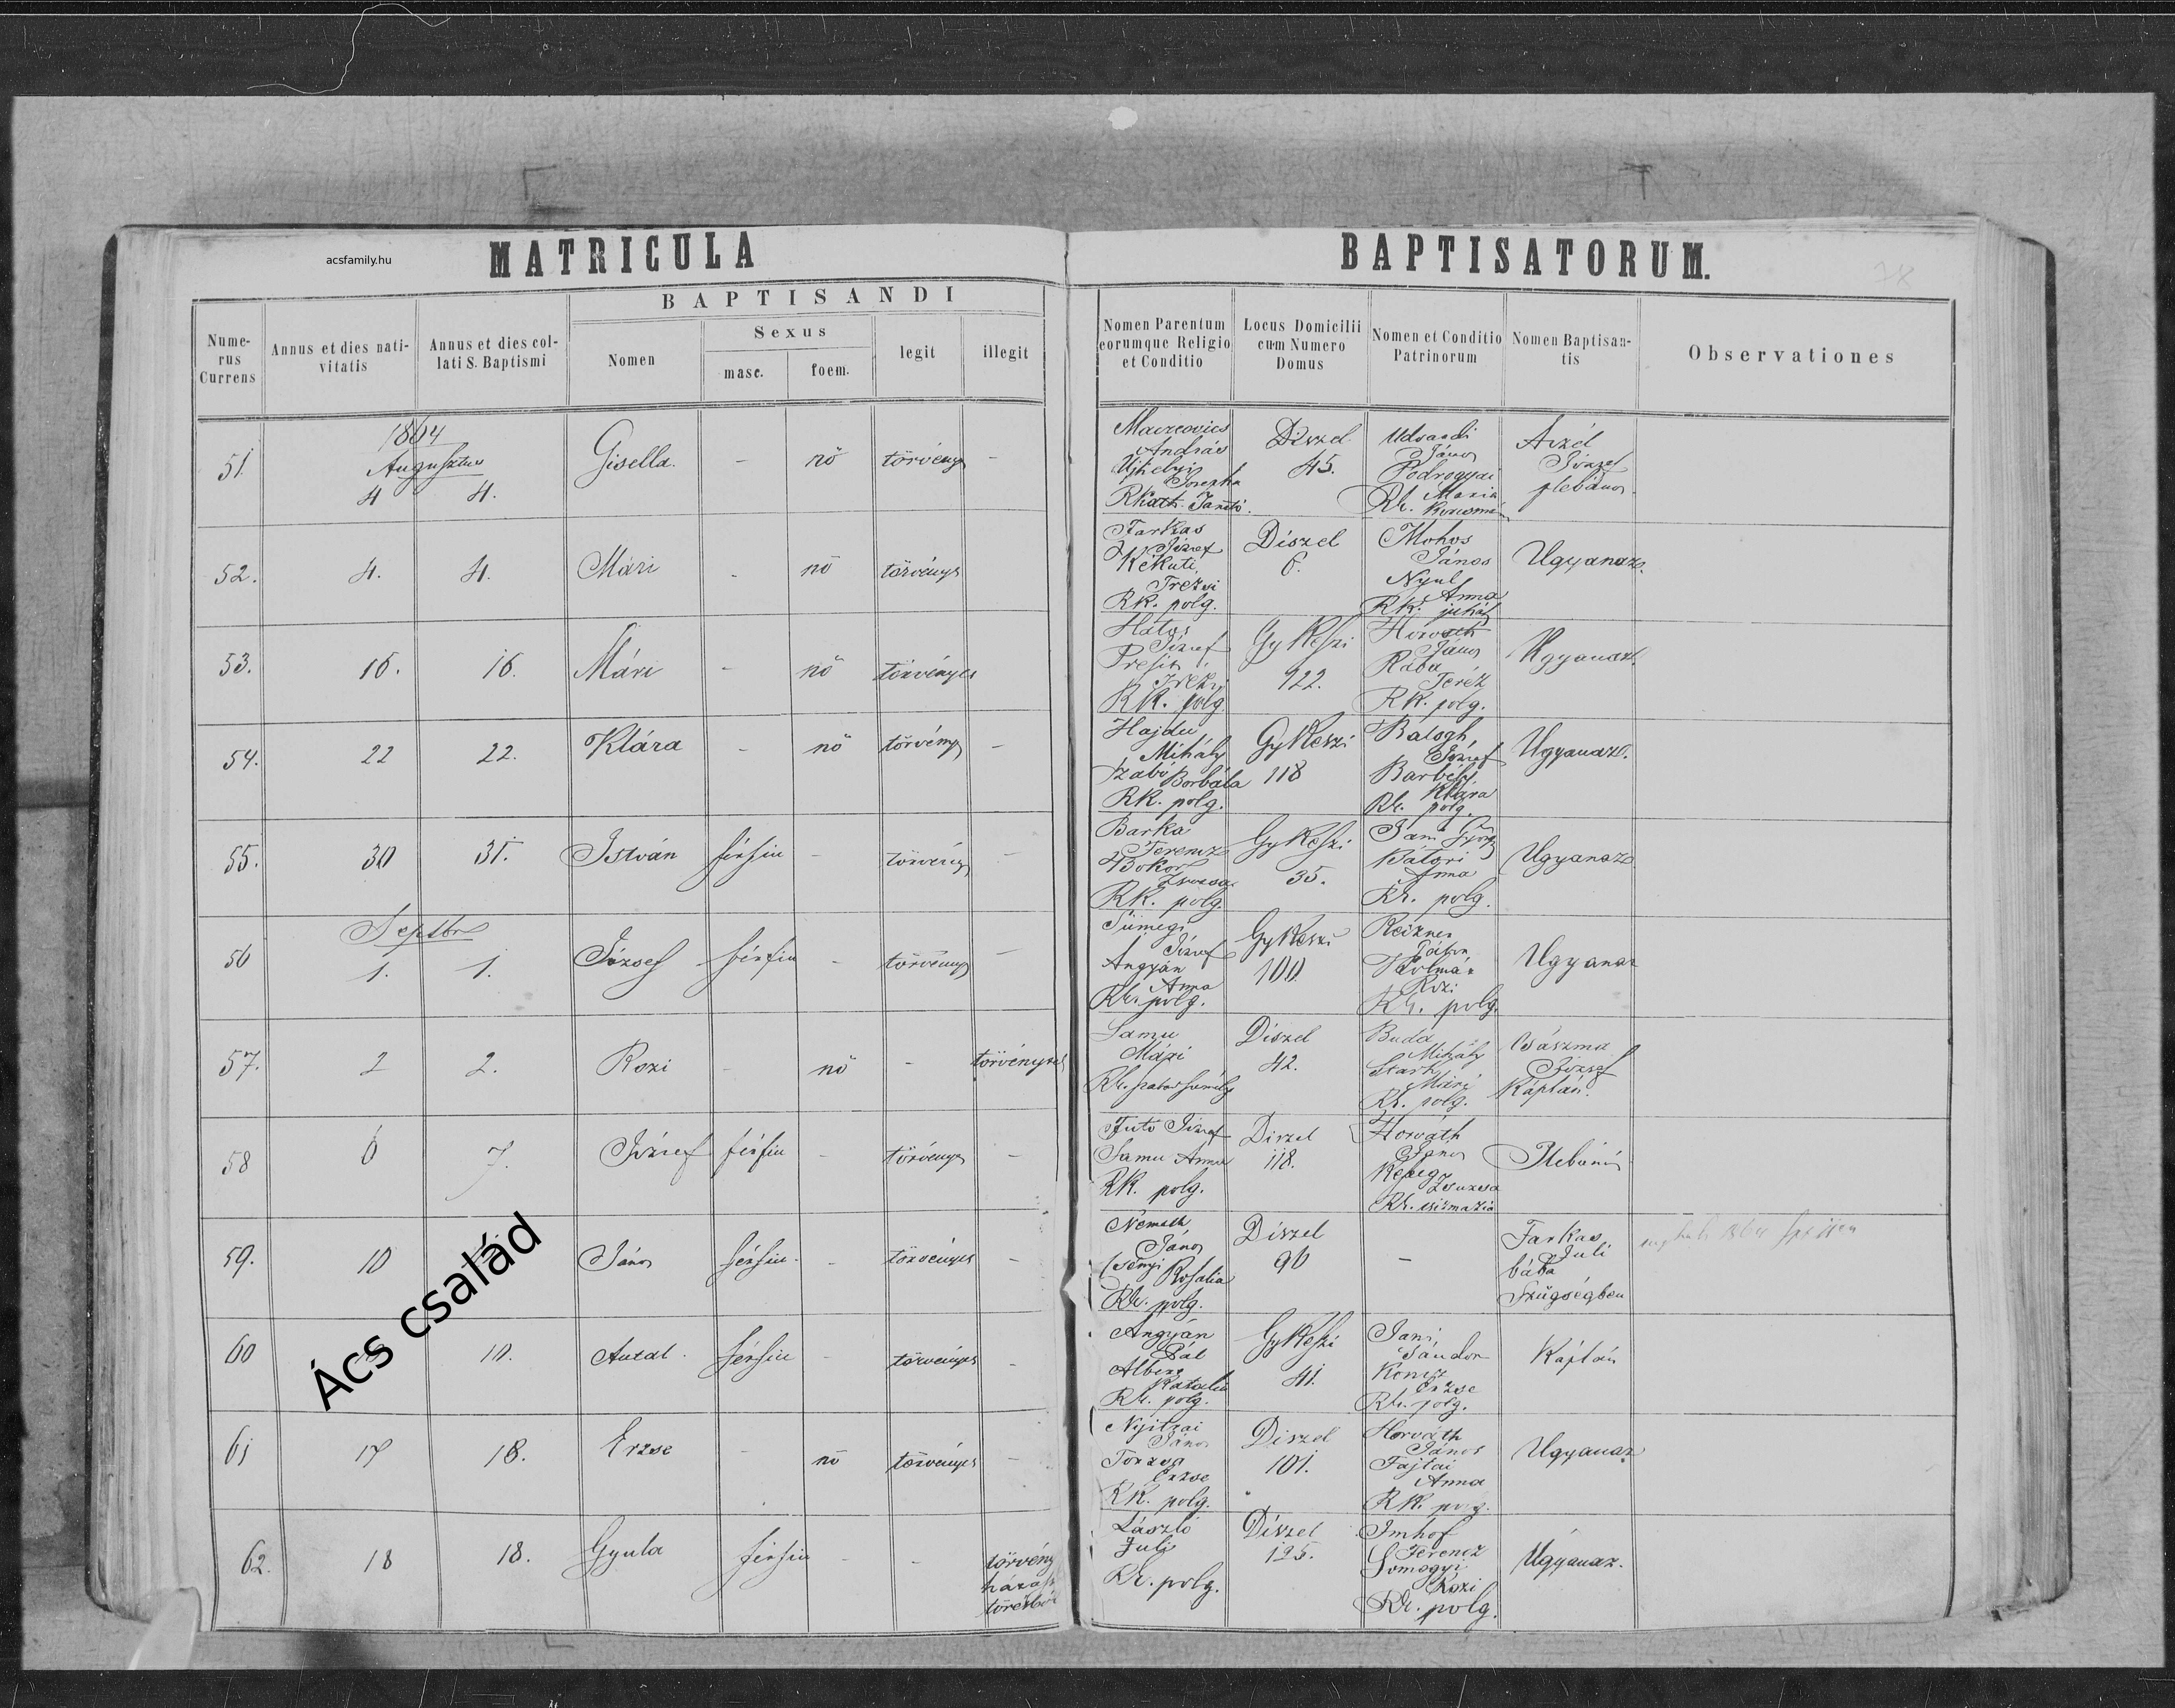 MATRICULA
BAPTISATORUM.
acsfamily.hu
BAPTISANDI
Nume-
rus
Currens
Annus et dies nati-
vitatis
Annus et dies col-
lati S. Baptismi
Nomen
Sexus
masc.
foem.
legit
illegit
Nomen Parentum
eorumque Religio
et Conditio
Locus Domicilii
cum Numero
Domus
Nomen et Conditio
Patrinorum
Nomen Baptisan-
tis
Observationes
1864
Augusztus
51. 4 4. Gisella. - nő törvény -
András
Josepha
Diszel
45.
János
Mária
József
plebános
52. 4. 4. Mári - nő törvénys
Farkas
József
Kékuti
Trézsi
RK. polg.
Diszel
6.
Mohos
János
Nyul
Anna
RK. juhás
Ugyanaz.
53. 16. 16. Mári - nő törvényes
József
RK. polg.
GyKeszi
122.
Horváth
János
Rába
Teréz
RK. polg.
Ugyanaz.
54. 22 22. Klára - nő törvény -
Hajdu
Mihály
Szabó Borbála
RK. polg.
GyKeszi
118
Balogh
József
Klára
RK. polg.
Ugyanaz.
55. 30 31. István férfiu - törvény -
Barka
Ferencz
Bokor
Zsuzsa
RK. polg.
GyKeszi
35.
Jani György
Bátori
Anna
RK. polg.
Ugyanaz
Septbr
56 1. 1. József férfiu - törvény -
Sümegi
József
Angyán
Anna
RK. polg.
GyKeszi
100.
Rozi
RK. polg.
Ugyanaz
57. 2 2. Rozi - nő - törvényte
Samu
Mári
Diszel
42.
Buda
Mihály
Stark
Mári
RK. polg.
József
Káplán.
58 6 7. József férfiu - törvénys -
Futó József
Samu Anna
RK. polg.
Diszel
118.
Horváth
János
Zsuzsa
RK. csizmazia
Plebános
59. 10 János férfiu. - törvényes -
Németh
János
Csényi
Rosalia
RK. polg.
Diszel
96
-
Farkas
Juli
bába
Szügségben
60 10. Antal. férfiu - törvényes -
Angyán
Pál
Katalin
RK. polg.
GyKeszi
41.
Jani
Sándor
Erzse
RK. polg.
Káplán
61 17 18. Erzse - nő törvényes -
Nyitrai
János
Erzse
RK. polg.
Diszel
101.
Horváth
János
Fajtai
Anna
RK. polg.
Ugyanaz
62. 18 18. Gyula férfiu - - törvény
László
Juli
RK. polg.
Diszel
125.
Imhof
Ferencz
Somogyi
Rozi
RK. polg.
Ugyanaz.
Ács család